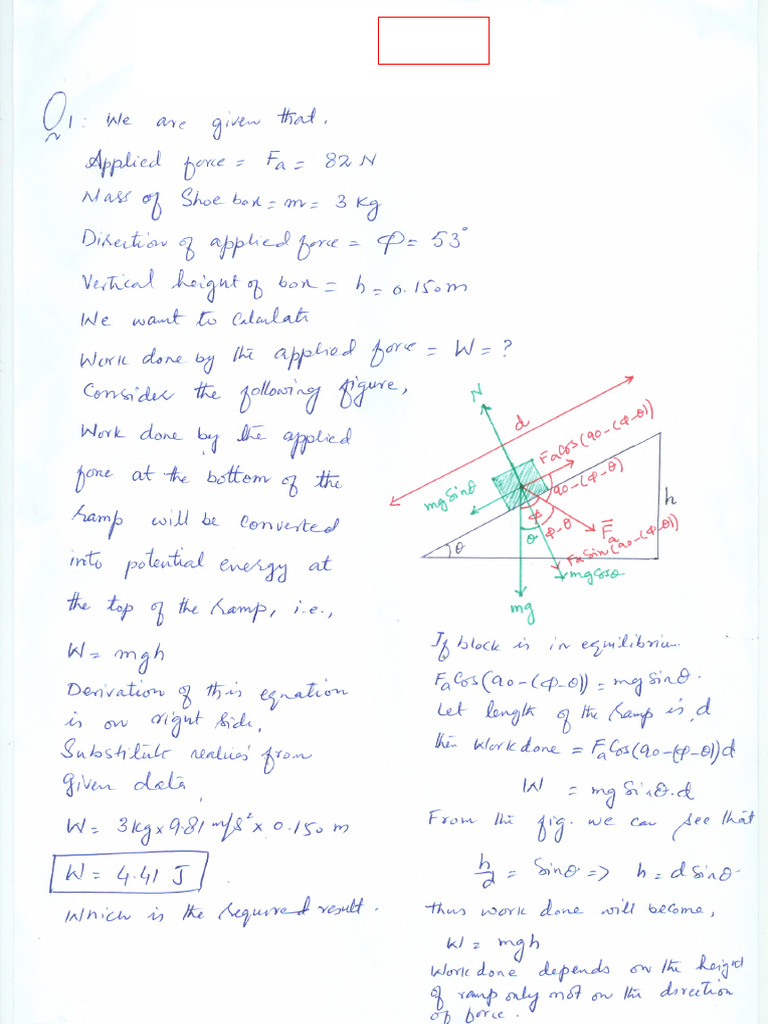 Q1: We are given that,
Applied force = Fa = 82 N
Mass of Shoe box = m = 3 Kg
Direction of applied force = Φ = 53°
Vertical height of box = h = 0.150m
We want to Calculate
Work done by the applied force = W = ?
Consider the following figure,
Work done by the applied
force at the bottom of the
ramp will be converted
into potential energy at
the top of the ramp, i.e.,
W = mgh
Derivation of this equation
is on right side.
Substitute values from
given data,
W = 3kg x 9.81 m/s² x 0.150 m
W = 4.41 J
Which is the required result.
N
d
Fa Cos(90-(Φ-θ))
mg Sinθ
90-(Φ-θ)
Φ
θ
Φ-θ
F̄a
Fa Sin(90-(Φ-θ))
mg cosθ
mg
θ
h
If block is in equilibrium.
Fa Cos(90-(Φ-θ)) = mg Sinθ.
Let length of the ramp is, d
then Work done = Fa Cos(90-(Φ-θ))d
W = mg Sinθ.d
From the fig. we can see that
h/d = Sinθ => h = d Sinθ
thus work done will become,
W = mgh
Work done depends on the height
of ramp only not on the direction
of force.